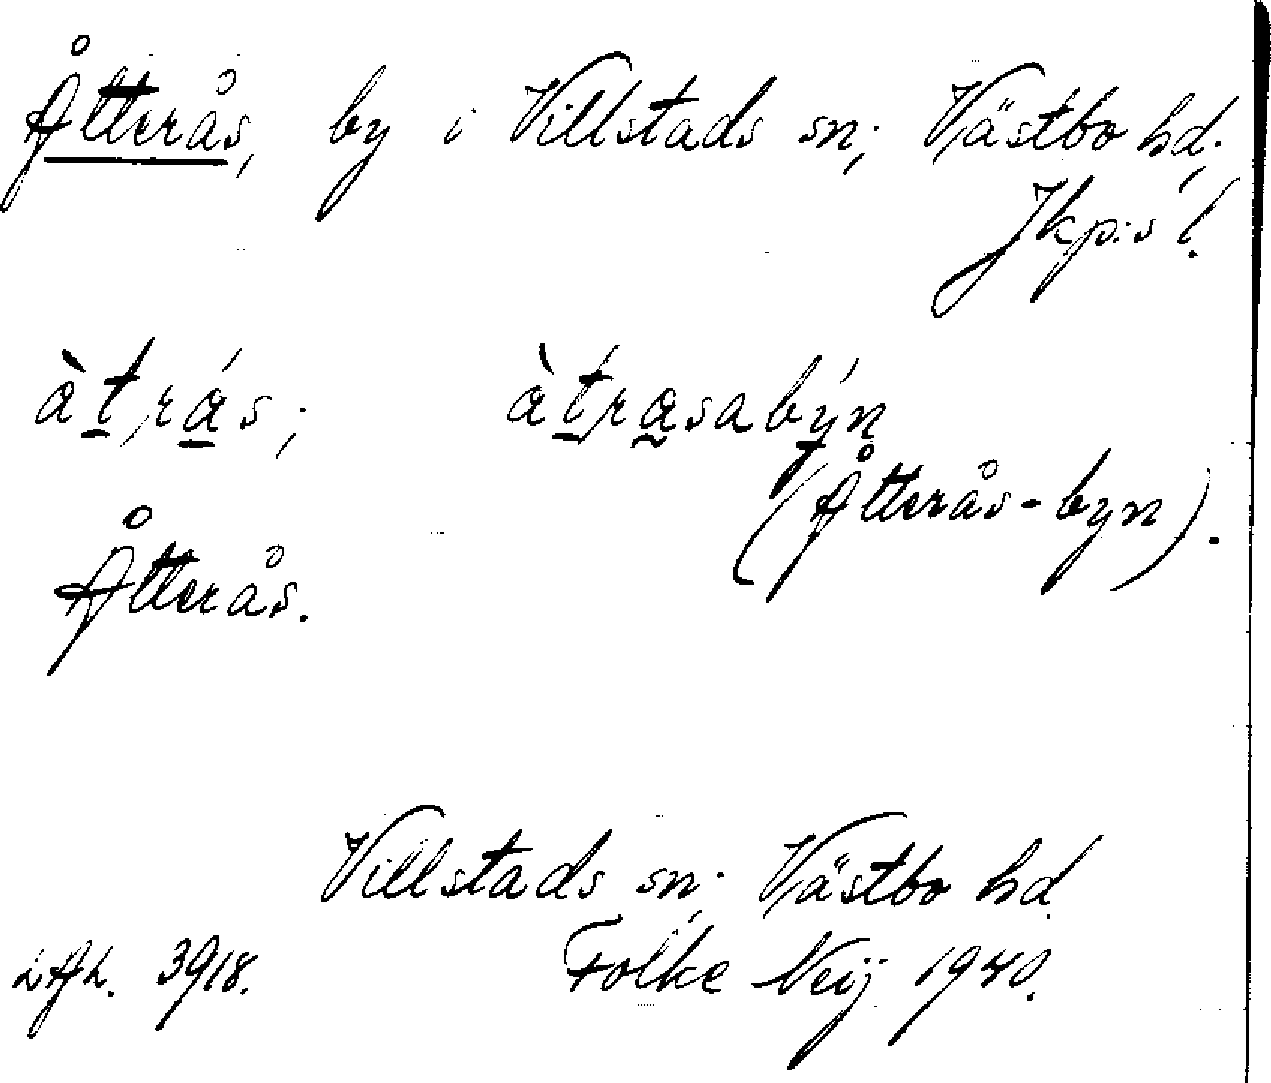 Åtterås, by i Villstads sn; Västbo hd;
Jkp:s l.
àt̲rá̲s; àt̲ra̰sabýn
(Åtterås-byn).
Åtterås.
Villstads sn; Västbo hd.
LAL. 3918. Folke Neij 1940.